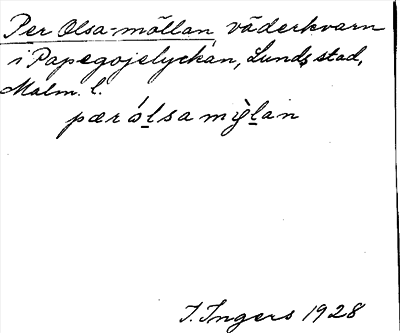 Per Olsa-möllan, väderkvarn
i Papegojelyckan, Lunds stad,
Malm. l.
pær ólsa mỳlan
I. Ingers 1928